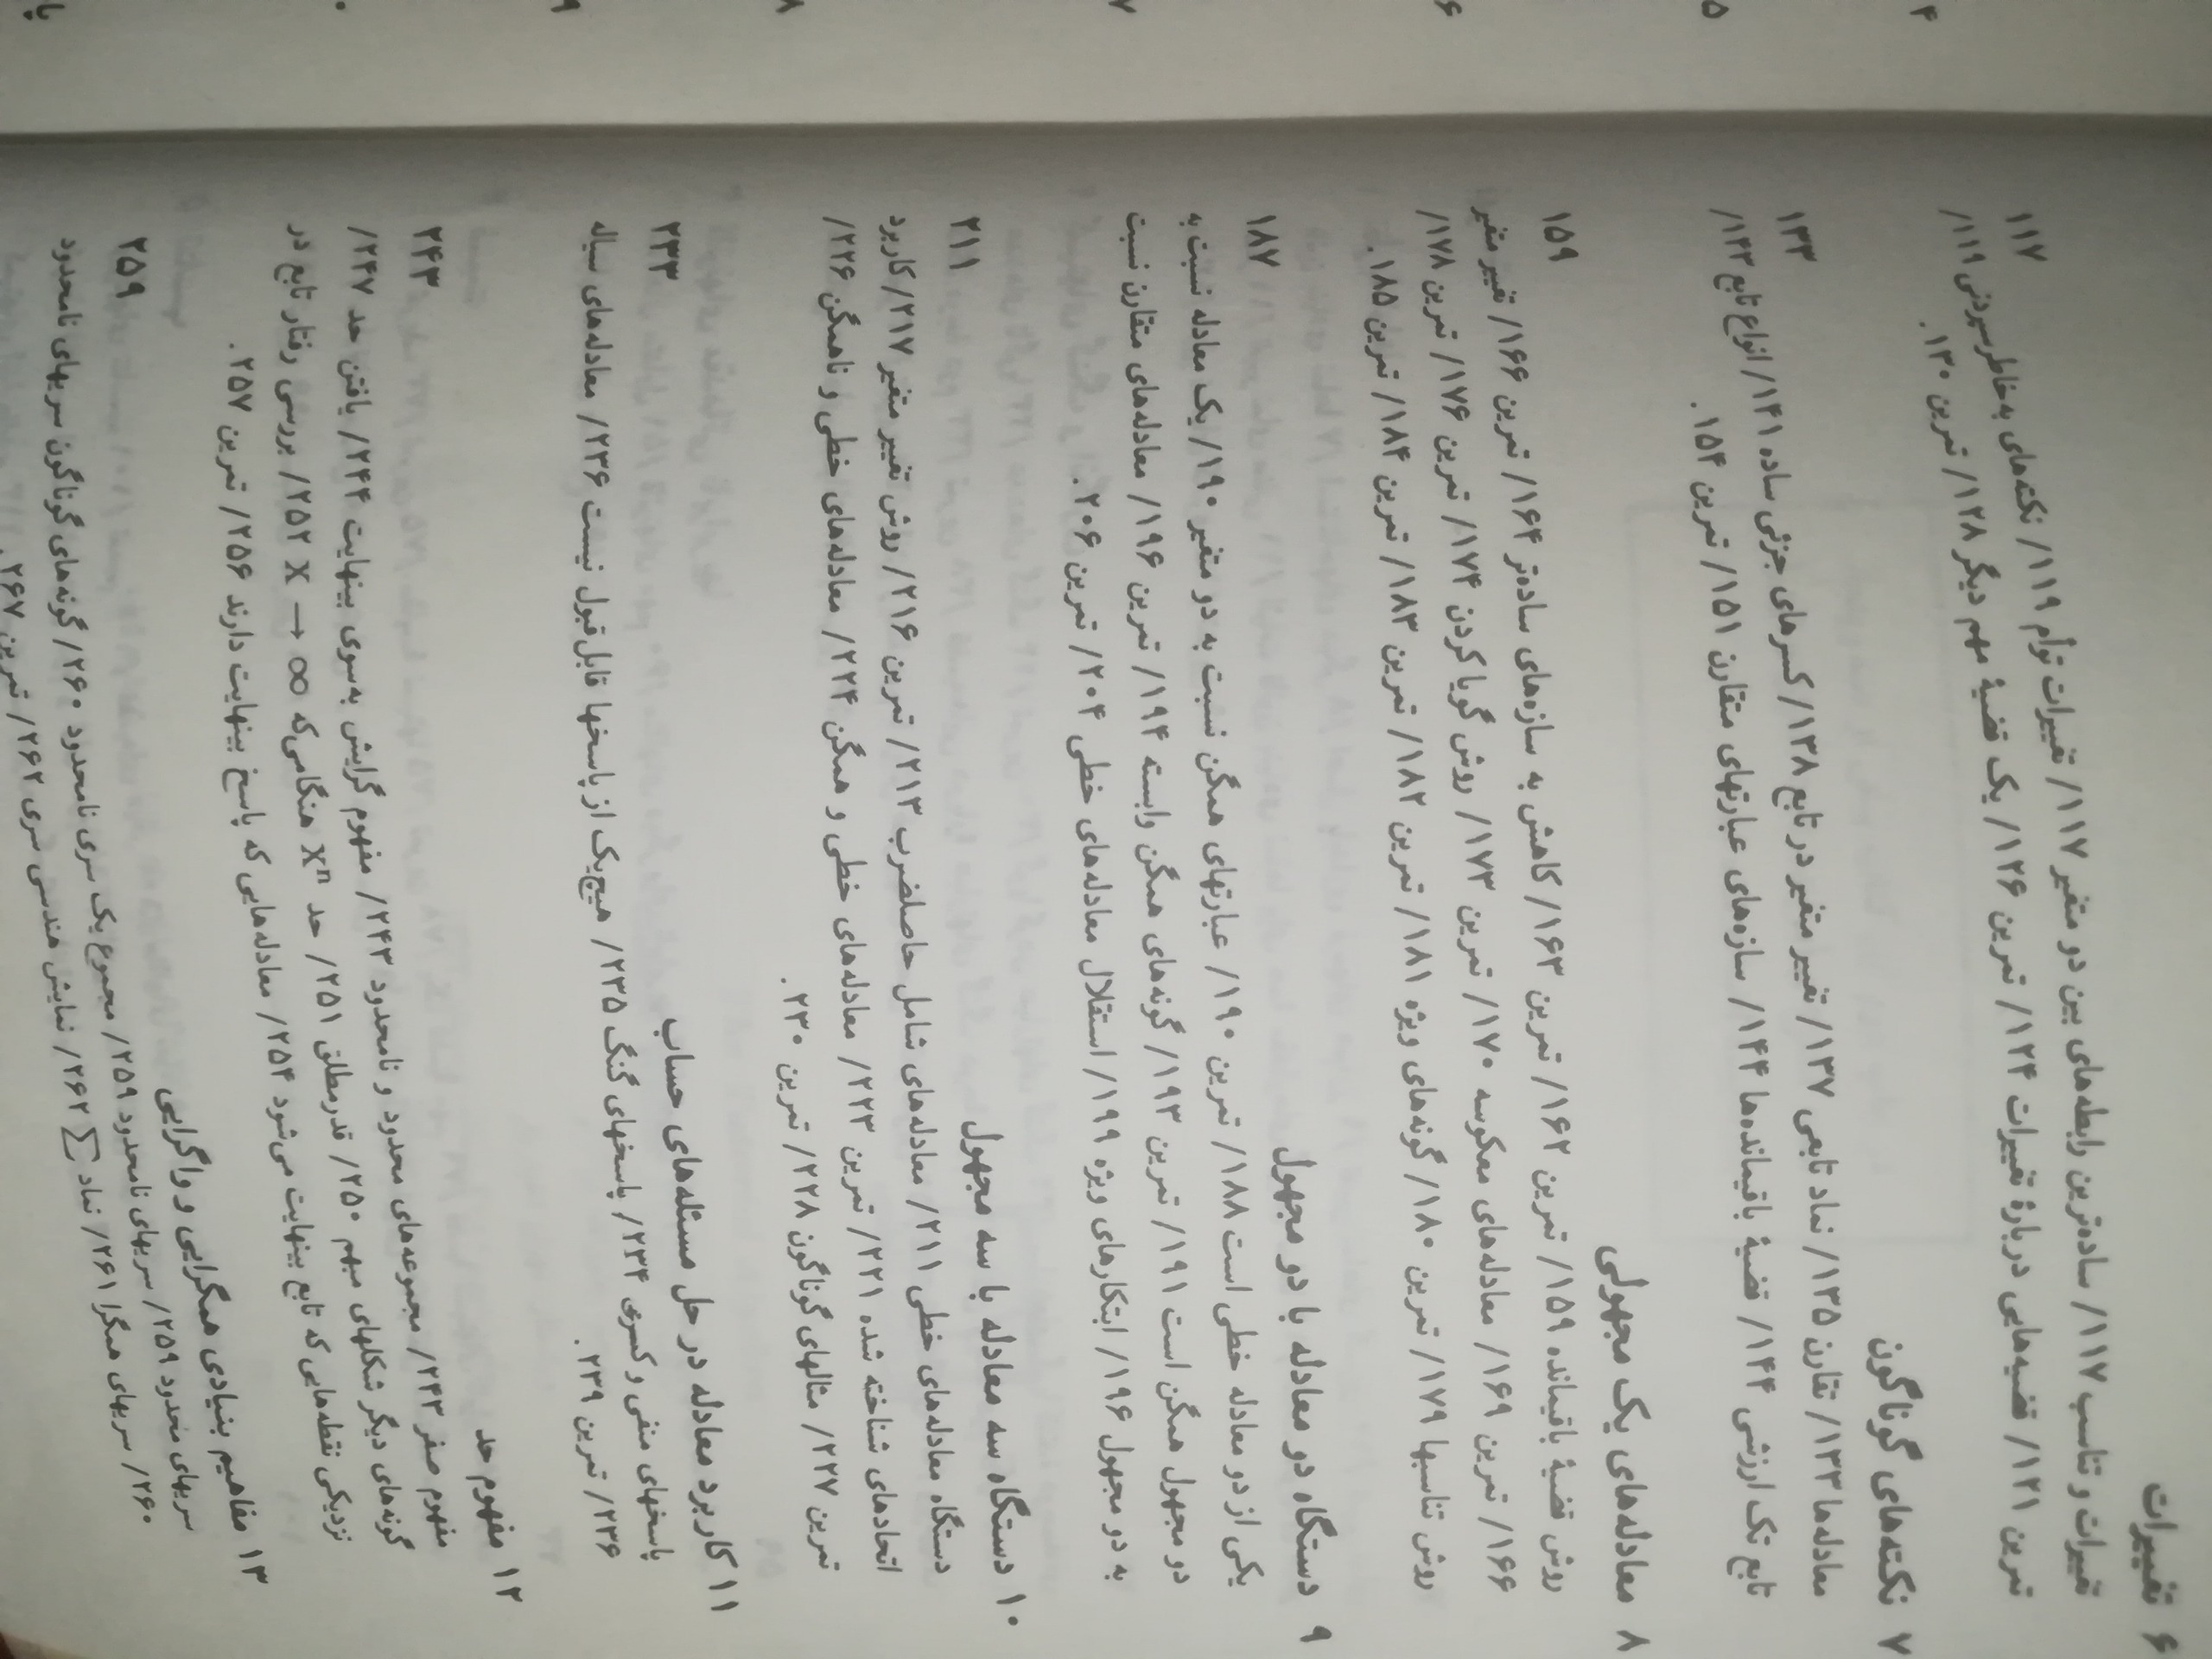 ۶ تغییرات
۱۱۷
تغییرات و تناسب ۱۱۷/ ساده‌ترین رابطه‌های بین دو متغیر ۱۱۷/ تغییرات توأم ۱۱۹/ نکته‌های به‌خاطر سپردنی ۱۱۹/
تمرین ۱۲۱/ قضیه‌هایی دربارهٔ تغییرات ۱۲۴/ تمرین ۱۲۶/ یک قضیهٔ مهم دیگر ۱۲۸/ تمرین ۱۳۰.
۷ نکته‌های گوناگون
۱۳۳
معادله‌ها ۱۳۳/ تقارن ۱۳۵/ نماد تابعی ۱۳۷/ تغییر متغیر در تابع ۱۳۸/ کسرهای جزئی ساده ۱۴۱/ انواع تابع ۱۴۳/
تابع تک ارزشی ۱۴۴/ قضیهٔ باقیمانده‌ها ۱۴۴/ سازه‌های عبارتهای متقارن ۱۵۱/ تمرین ۱۵۴.
۸ معادله‌های یک مجهولی
۱۵۹
روش قضیهٔ باقیمانده ۱۵۹/ تمرین ۱۶۲/ تمرین ۱۶۳/ کاهش به سازه‌های ساده‌تر ۱۶۴/ تمرین ۱۶۶/ تغییر متغیر
۱۶۶/ تمرین ۱۶۹/ معادله‌های معکوسه ۱۷۰/ تمرین ۱۷۳/ روش گویا کردن ۱۷۴/ تمرین ۱۷۶/ تمرین ۱۷۸/
روش تناسبها ۱۷۹/ تمرین ۱۸۰/ گونه‌های ویژه ۱۸۱/ تمرین ۱۸۲/ تمرین ۱۸۳/ تمرین ۱۸۴/ تمرین ۱۸۵.
۹ دستگاه دو معادله با دو مجهول
۱۸۷
یکی از دو معادله خطی است ۱۸۸/ تمرین ۱۹۰/ عبارتهای همگن نسبت به دو متغیر ۱۹۰/ یک معادله نسبت به
دو مجهول همگن است ۱۹۱/ تمرین ۱۹۳/ گونه‌های همگن وابسته ۱۹۴/ تمرین ۱۹۶/ معادله‌های متقارن نسبت
به دو مجهول ۱۹۶/ ابتکارهای ویژه ۱۹۹/ استقلال معادله‌های خطی ۲۰۴/ تمرین ۲۰۶.
۱۰ دستگاه سه معادله با سه مجهول
۲۱۱
دستگاه معادله‌های خطی ۲۱۱/ معادله‌های شامل حاصلضرب ۲۱۳/ تمرین ۲۱۶/ روش تغییر متغیر ۲۱۷/ کاربرد
اتحادهای شناخته شده ۲۲۱/ تمرین ۲۲۳/ معادله‌های خطی و همگن ۲۲۴/ معادله‌های خطی و ناهمگن ۲۲۶/
تمرین ۲۲۷/ مثالهای گوناگون ۲۲۸/ تمرین ۲۳۰.
۱۱ کاربرد معادله در حل مسئله‌های حساب
۲۳۳
پاسخهای منفی و کسری ۲۳۴/ پاسخهای گنگ ۲۳۵/ هیچ‌یک از پاسخها قابل قبول نیست ۲۳۶/ معادله‌های سیاله
۲۳۶/ تمرین ۲۳۹.
۱۲ مفهوم حد
۲۴۳
مفهوم صفر ۲۴۳/ مجموعه‌های محدود و نامحدود ۲۴۳/ مفهوم گرایش به‌سوی بینهایت ۲۴۴/ یافتن حد ۲۴۷/
گونه‌های دیگر شکلهای مبهم ۲۵۰/ قدرمطلق ۲۵۱/ حد xⁿ هنگامی‌که x → ∞ ۲۵۲/ بررسی رفتار تابع در
نزدیکی نقطه‌هایی که تابع بینهایت می‌شود ۲۵۴/ معادله‌هایی که پاسخ بینهایت دارند ۲۵۶/ تمرین ۲۵۷.
۱۳ مفاهیم بنیادی همگرایی و واگرایی
۲۵۹
سریهای محدود ۲۵۹/ سریهای نامحدود ۲۵۹/ مجموع یک سری نامحدود ۲۶۰/ گونه‌های گوناگون سریهای نامحدود
۲۶۰/ سریهای همگرا ۲۶۱/ نماد ∑ ۲۶۲/ نمایش هندسی سری ۲۶۲/ تمرین ۲۶۷.
۴
۵
۶
۷
۸
۹